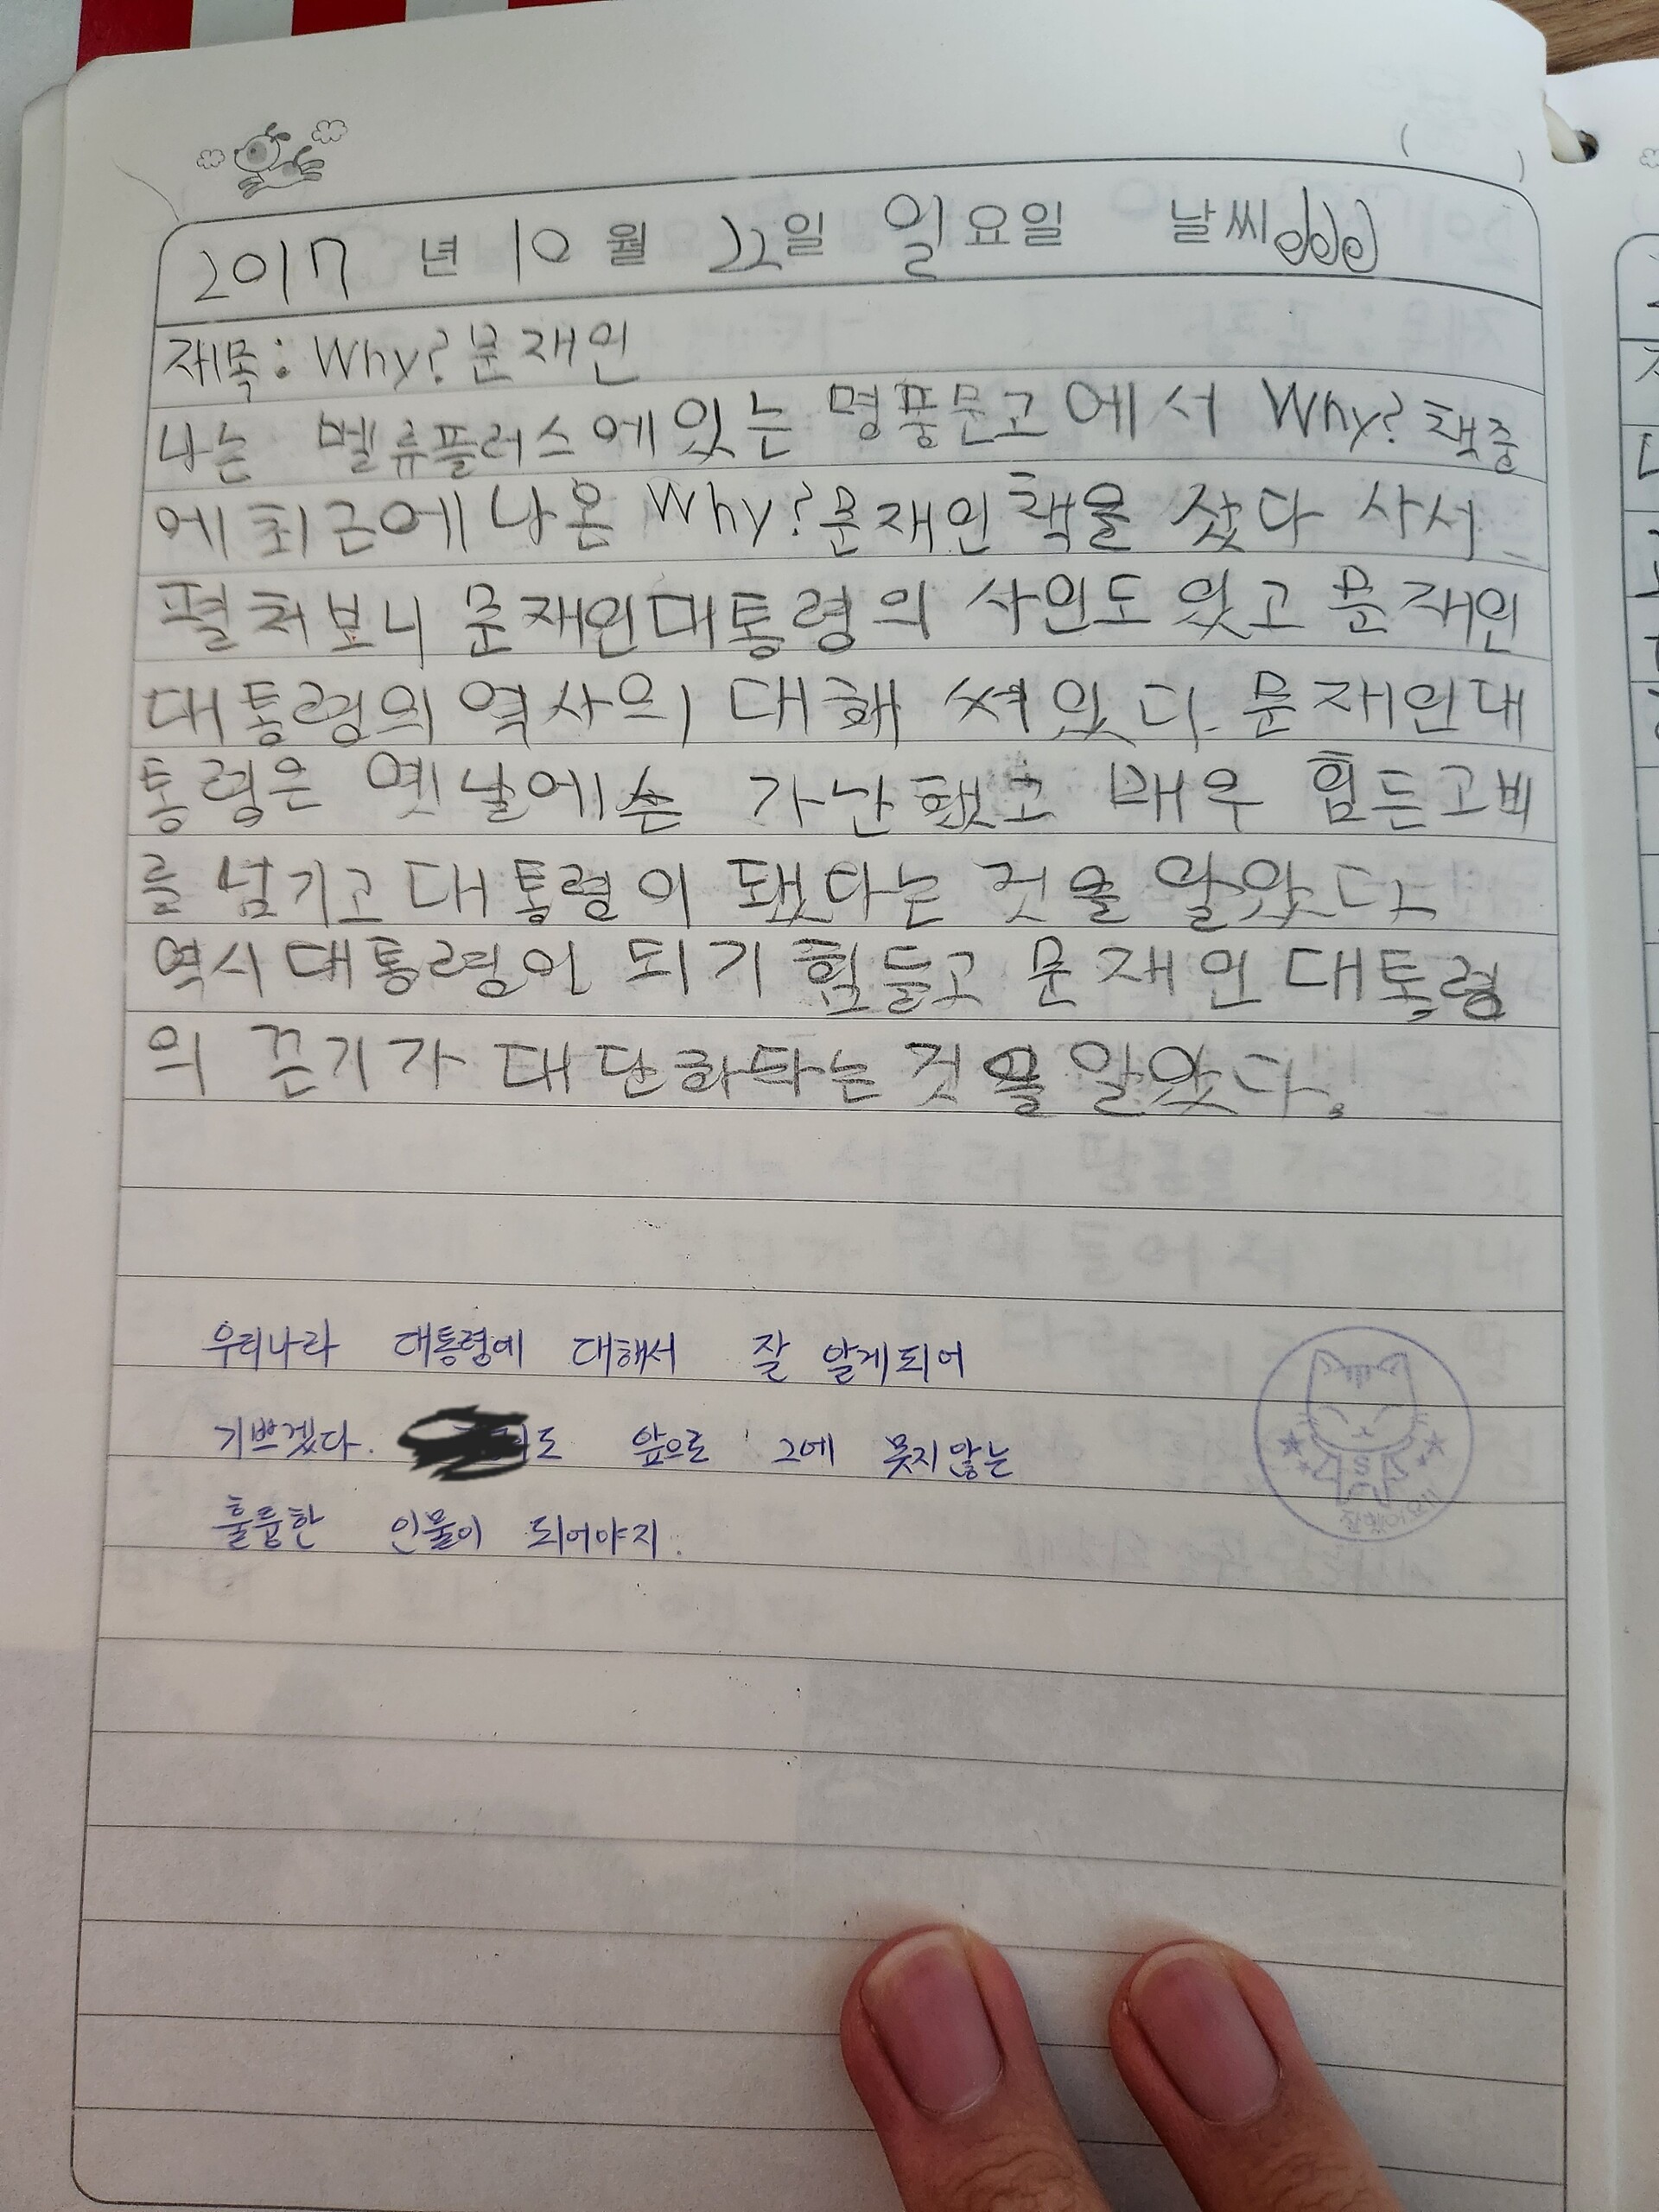 2017 년 10 월 22일 일요일 날씨
제목: Why? 문재인
나는 벨류플러스에있는 명품문고에서 Why? 책중
에 최근에 나온 Why? 문재인 책을 샀다 사서
펼쳐보니 문재인대통령의 사인도 있고 문재인
대통령의 역사의 대해 써있다. 문재인대
통령은 옛날에는 가난했고 매우 힘든고비
를 넘기고 대통령이 됐다는 것을 알았다.
역시 대통령인 되기 힘들고 문재인 대통령
의 끈기가 대단하다는 것을 알았다.
우리나라 대통령에 대해서 잘 알게되어
기쁘겠다. 도 앞으로 그에 못지않는
훌륭한 인물이 되어야지.
S